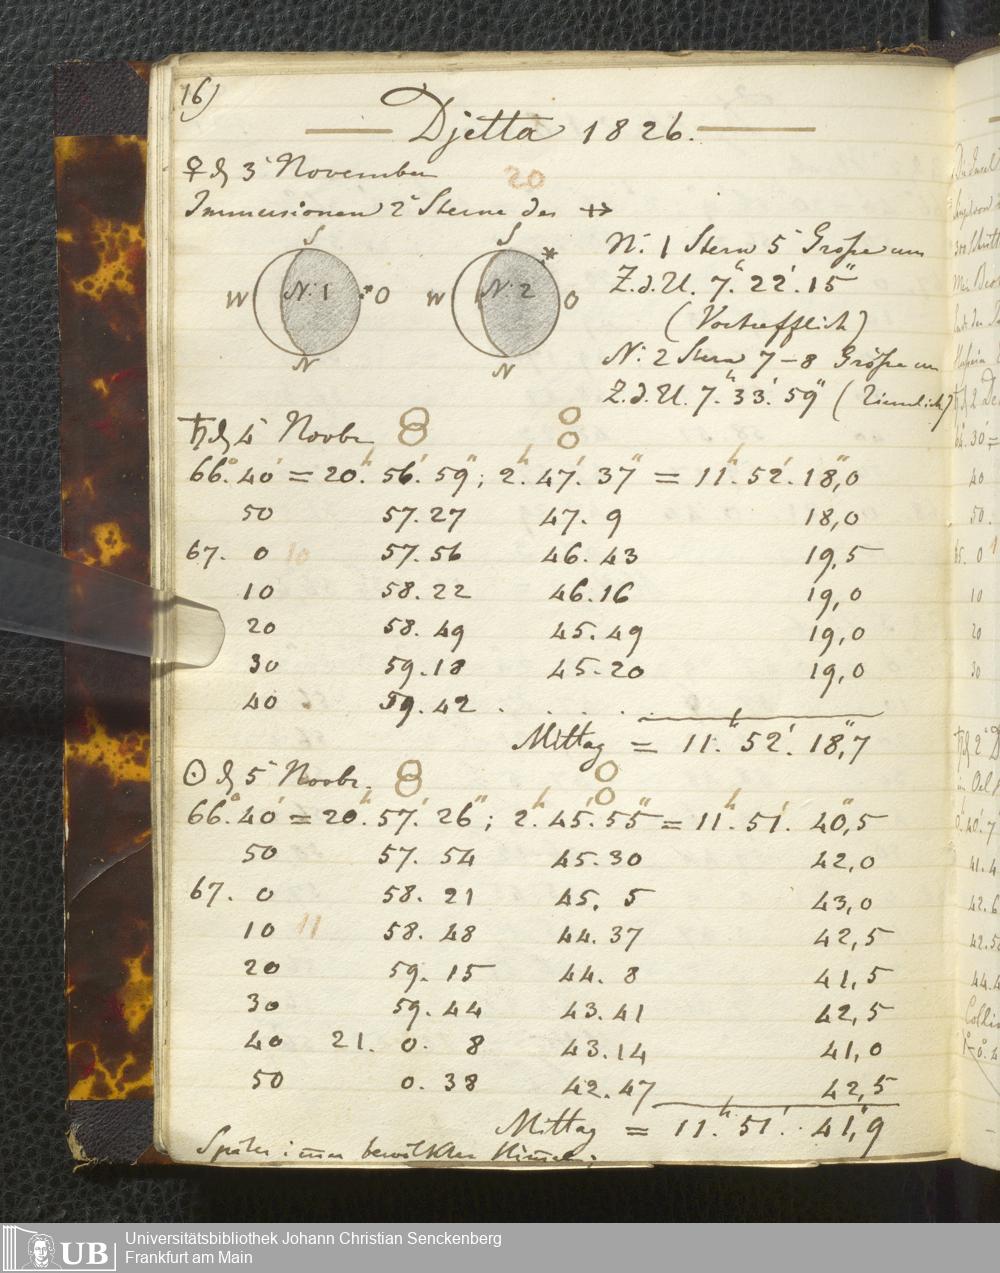 16)
Djetta 1826.
♀ d 3ᵗ November
20
Immersionen 2ʳ Sterne des ♐
S
W N: 1 O
N
S
W N: 2 O
N
N: 1 Stern 5ʳ Große um
Z. d. U. 7ʰ. 22'. 15"
(Vortrefflich)
N: 2 Stern 7–8 Größe um
Z. d. U. 7ʰ. 33'. 59" (Ziemlich)
♄ d 4ᵗ Novbr
66°. 40' = 20ʰ. 56'. 59"; 2ʰ. 47'. 37" = 11ʰ. 52'. 18",0
50 57. 27 47. 9 18,0
67. 0 10 57. 56 46. 43 19,5
10 58. 22 46. 16 19,0
20 58. 49 45. 49 19,0
30 59. 18 45. 20 19,0
40 59. 42 . . . .
Mittag = 11ʰ. 52'. 18",7
☉ d 5ᵗ Novbr.
66°. 40' = 20ʰ. 57'. 26"; 2ʰ. 45'. 55" = 11ʰ. 51'. 40",5
50 57. 54 45. 30 42,0
67. 0 58. 21 45. 5 43,0
10 11 58. 48 44. 37 42,5
20 59. 15 44. 8 41,5
30 59. 44 43. 41 42,5
40 21. 0. 8 43. 14 41,0
50 0. 38 42. 47 42,5
Mittag = 11ʰ. 51'. 41",9
Später im̄er bewölkter Him̄el;
UB
Universitätsbibliothek Johann Christian Senckenberg
Frankfurt am Main